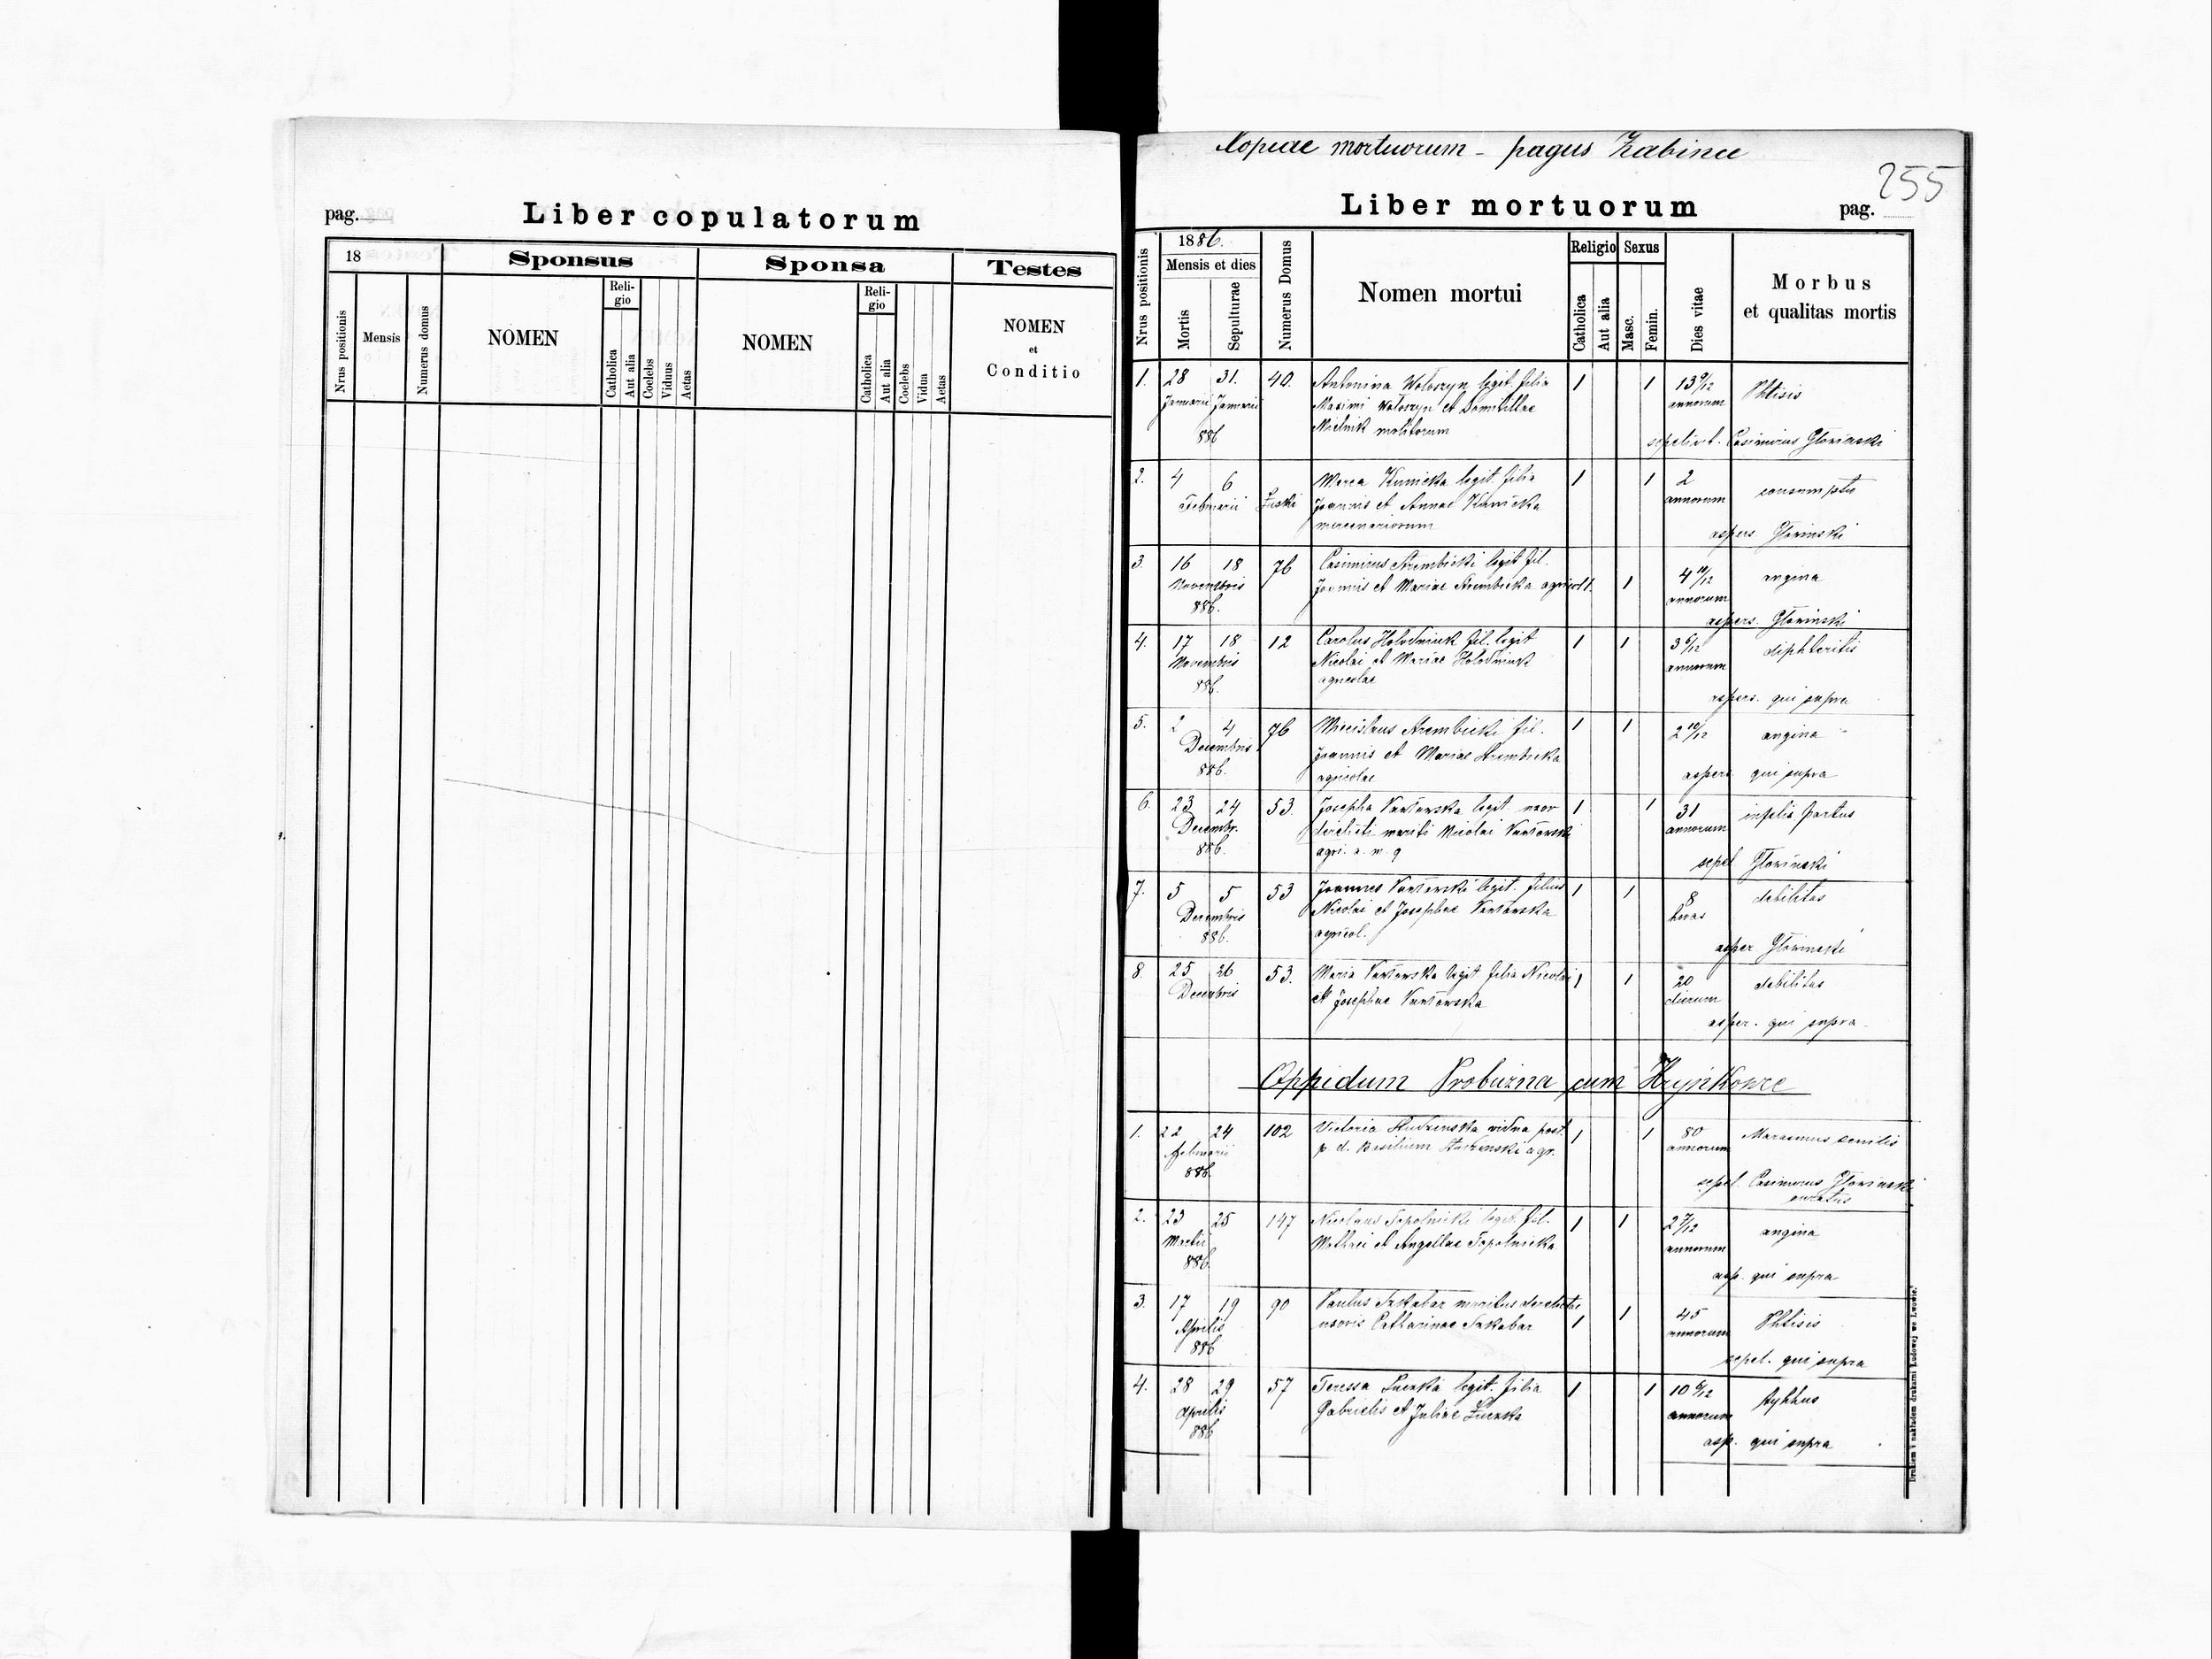 pag.
Liber copulatorum
18
Sponsus
Sponsa
Testes
Nrus positionis
Mensis
Numerus domus
NOMEN
Religio
Catholica
Aut alia
Coelebs
Viduus
Aetas
NOMEN
Religio
Catholica
Aut alia
Coelebs
Vidua
Aetas
NOMEN
et
Conditio
Copiae mortuorum - pagus Żabińce
255
Liber mortuorum
pag.
Nrus positionis
1886.
Mensis et dies
Mortis
Sepulturae
Numerus Domus
Nomen mortui
Religio
Catholica
Aut alia
Sexus
Masc.
Femin.
Dies vitae
Morbus
et qualitas mortis
1. 28 31. 40. Antonina Wołoszyn legit. filia 1 1 13 9/12 Phtisis
Januarii Januarii Maximi Wołoszyn et Domitillae annorum
886 Mielnik molitorum sepelivit. Casimirus Głowinski
2. 4 6 legit. filia 1 1 2
Februarii Joannis et Annae annorum
mercenariorum aspers Głowinski
3. 16 18 76 Casimirus legit fil. 1 angina
Novembris Joannis et Mariae annorum
886. aspers. Głowinski
4. 17 18 12 Carolus fil. legit 1 1 3 6/12 diphteritis
Novembris Nicolai et Mariae annorum
886. agricolae aspers. qui supra
5. 2 4 76 Miecislaus fil. 1 1 2 10/12 angina
Decembris Joannis et Mariae
886. agricolae aspers qui supra
6. 23 24 53. Josepha legit. uxor 1 1 31 partus
Decembr. derelicti mariti Nicolai annorum
886. agri. sepel Głowinski
7. 5 5 53 Joannes legit. filius 1 1 8 debilitas
Decembris Nicolai et Josephae horas
886. agricol. asper Głowinski
8. 25 26 53. Maria legit filia Nicolai 1 1 20 debilitas
Decembris et Josephae dierum
asper. qui supra
Oppidum Probużna cum Hryńkowce
1. 22 24 102 Victoria vidua post. 1 1 80 Marasmus senilis
Februarii p. d. Basilium agr. annorum
886. sepel. Casimirus Głowinski
curatus
2. 23 25 147 Nicolaus Topolnicki legit. fil. 1 1 2 7/12 angina
Martii Mathaei et Angellae Topolnicka annorum
886. asp. qui supra
3. 17 19 90 Paulus maritus derelictae 1 45 Phtisis
Aprilis uxoris Catharinae 1 annorum
886 sepel. qui supra
4. 28 29 57 Teressa Łucka legit. filia 1 1 10 6/12 typhus
Aprilis Gabrielis et Juliae annorum
886 asp. qui supra
Drukiem i nakładem drukarni Ludowej we Lwowie.